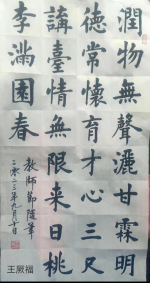 潤物無聲灑甘霖明
徳常懷育才心三尺
講臺情無限来日桃
李滿園春
教師節随筆
二〇二三年九月十日
王厥福